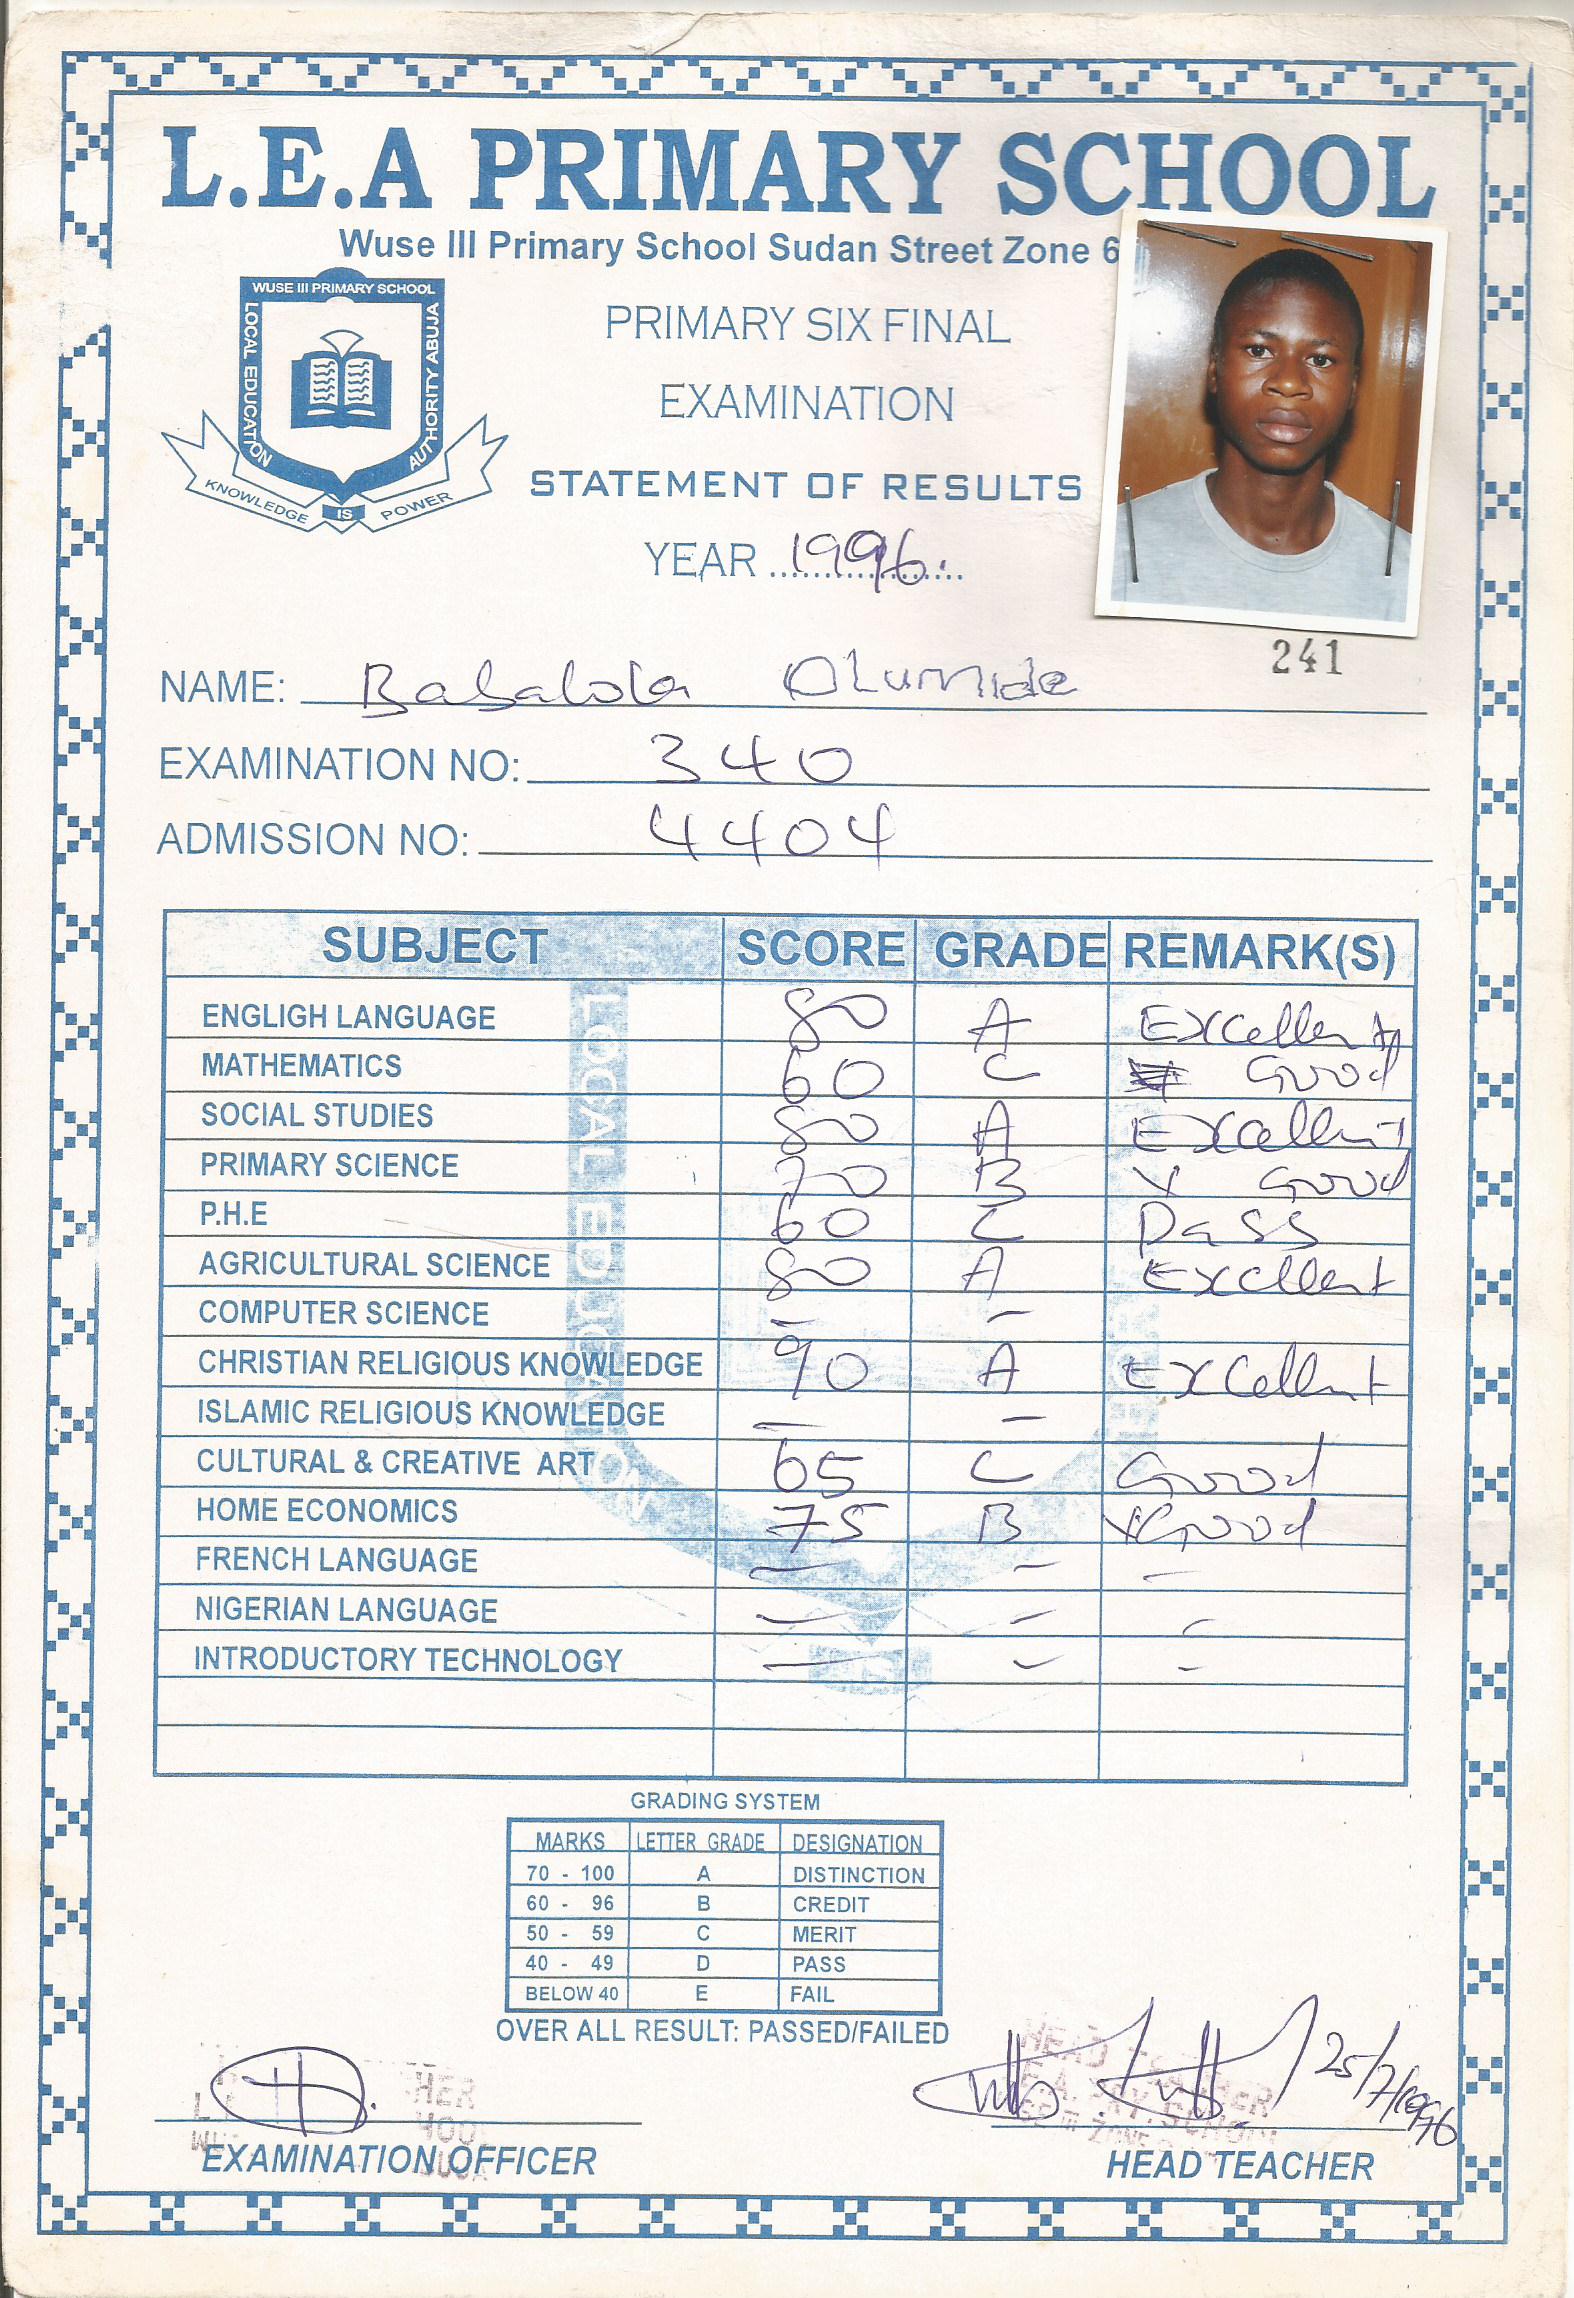 L.E.A PRIMARY SCHOOL
Wuse III Primary School Sudan Street Zone 6
WUSE III PRIMARY SCHOOL
LOCAL EDUCATION
AUTHORITY ABUJA
KNOWLEDGE IS POWER
PRIMARY SIX FINAL
EXAMINATION
STATEMENT OF RESULTS
YEAR 1996.
241
NAME: Babalola Olumide
EXAMINATION NO: 340
ADMISSION NO: 4404
SUBJECT SCORE GRADE REMARK(S)
ENGLIGH LANGUAGE 80 A Excellent
MATHEMATICS 60 C Good
SOCIAL STUDIES 80 A Excellent
PRIMARY SCIENCE 70 B V Good
P.H.E 60 C Pass
AGRICULTURAL SCIENCE 80 A Excellent
COMPUTER SCIENCE – –
CHRISTIAN RELIGIOUS KNOWLEDGE 90 A Excellent
ISLAMIC RELIGIOUS KNOWLEDGE – –
CULTURAL & CREATIVE ART 65 C Good
HOME ECONOMICS 75 B VGood
FRENCH LANGUAGE – – –
NIGERIAN LANGUAGE – – –
INTRODUCTORY TECHNOLOGY – – –
LOCAL EDUCATION
IS
GRADING SYSTEM
MARKS LETTER GRADE DESIGNATION
70 - 100 A DISTINCTION
60 - 96 B CREDIT
50 - 59 C MERIT
40 - 49 D PASS
BELOW 40 E FAIL
OVER ALL RESULT: PASSED/FAILED
25/7/1996
EXAMINATION OFFICER
HEAD TEACHER